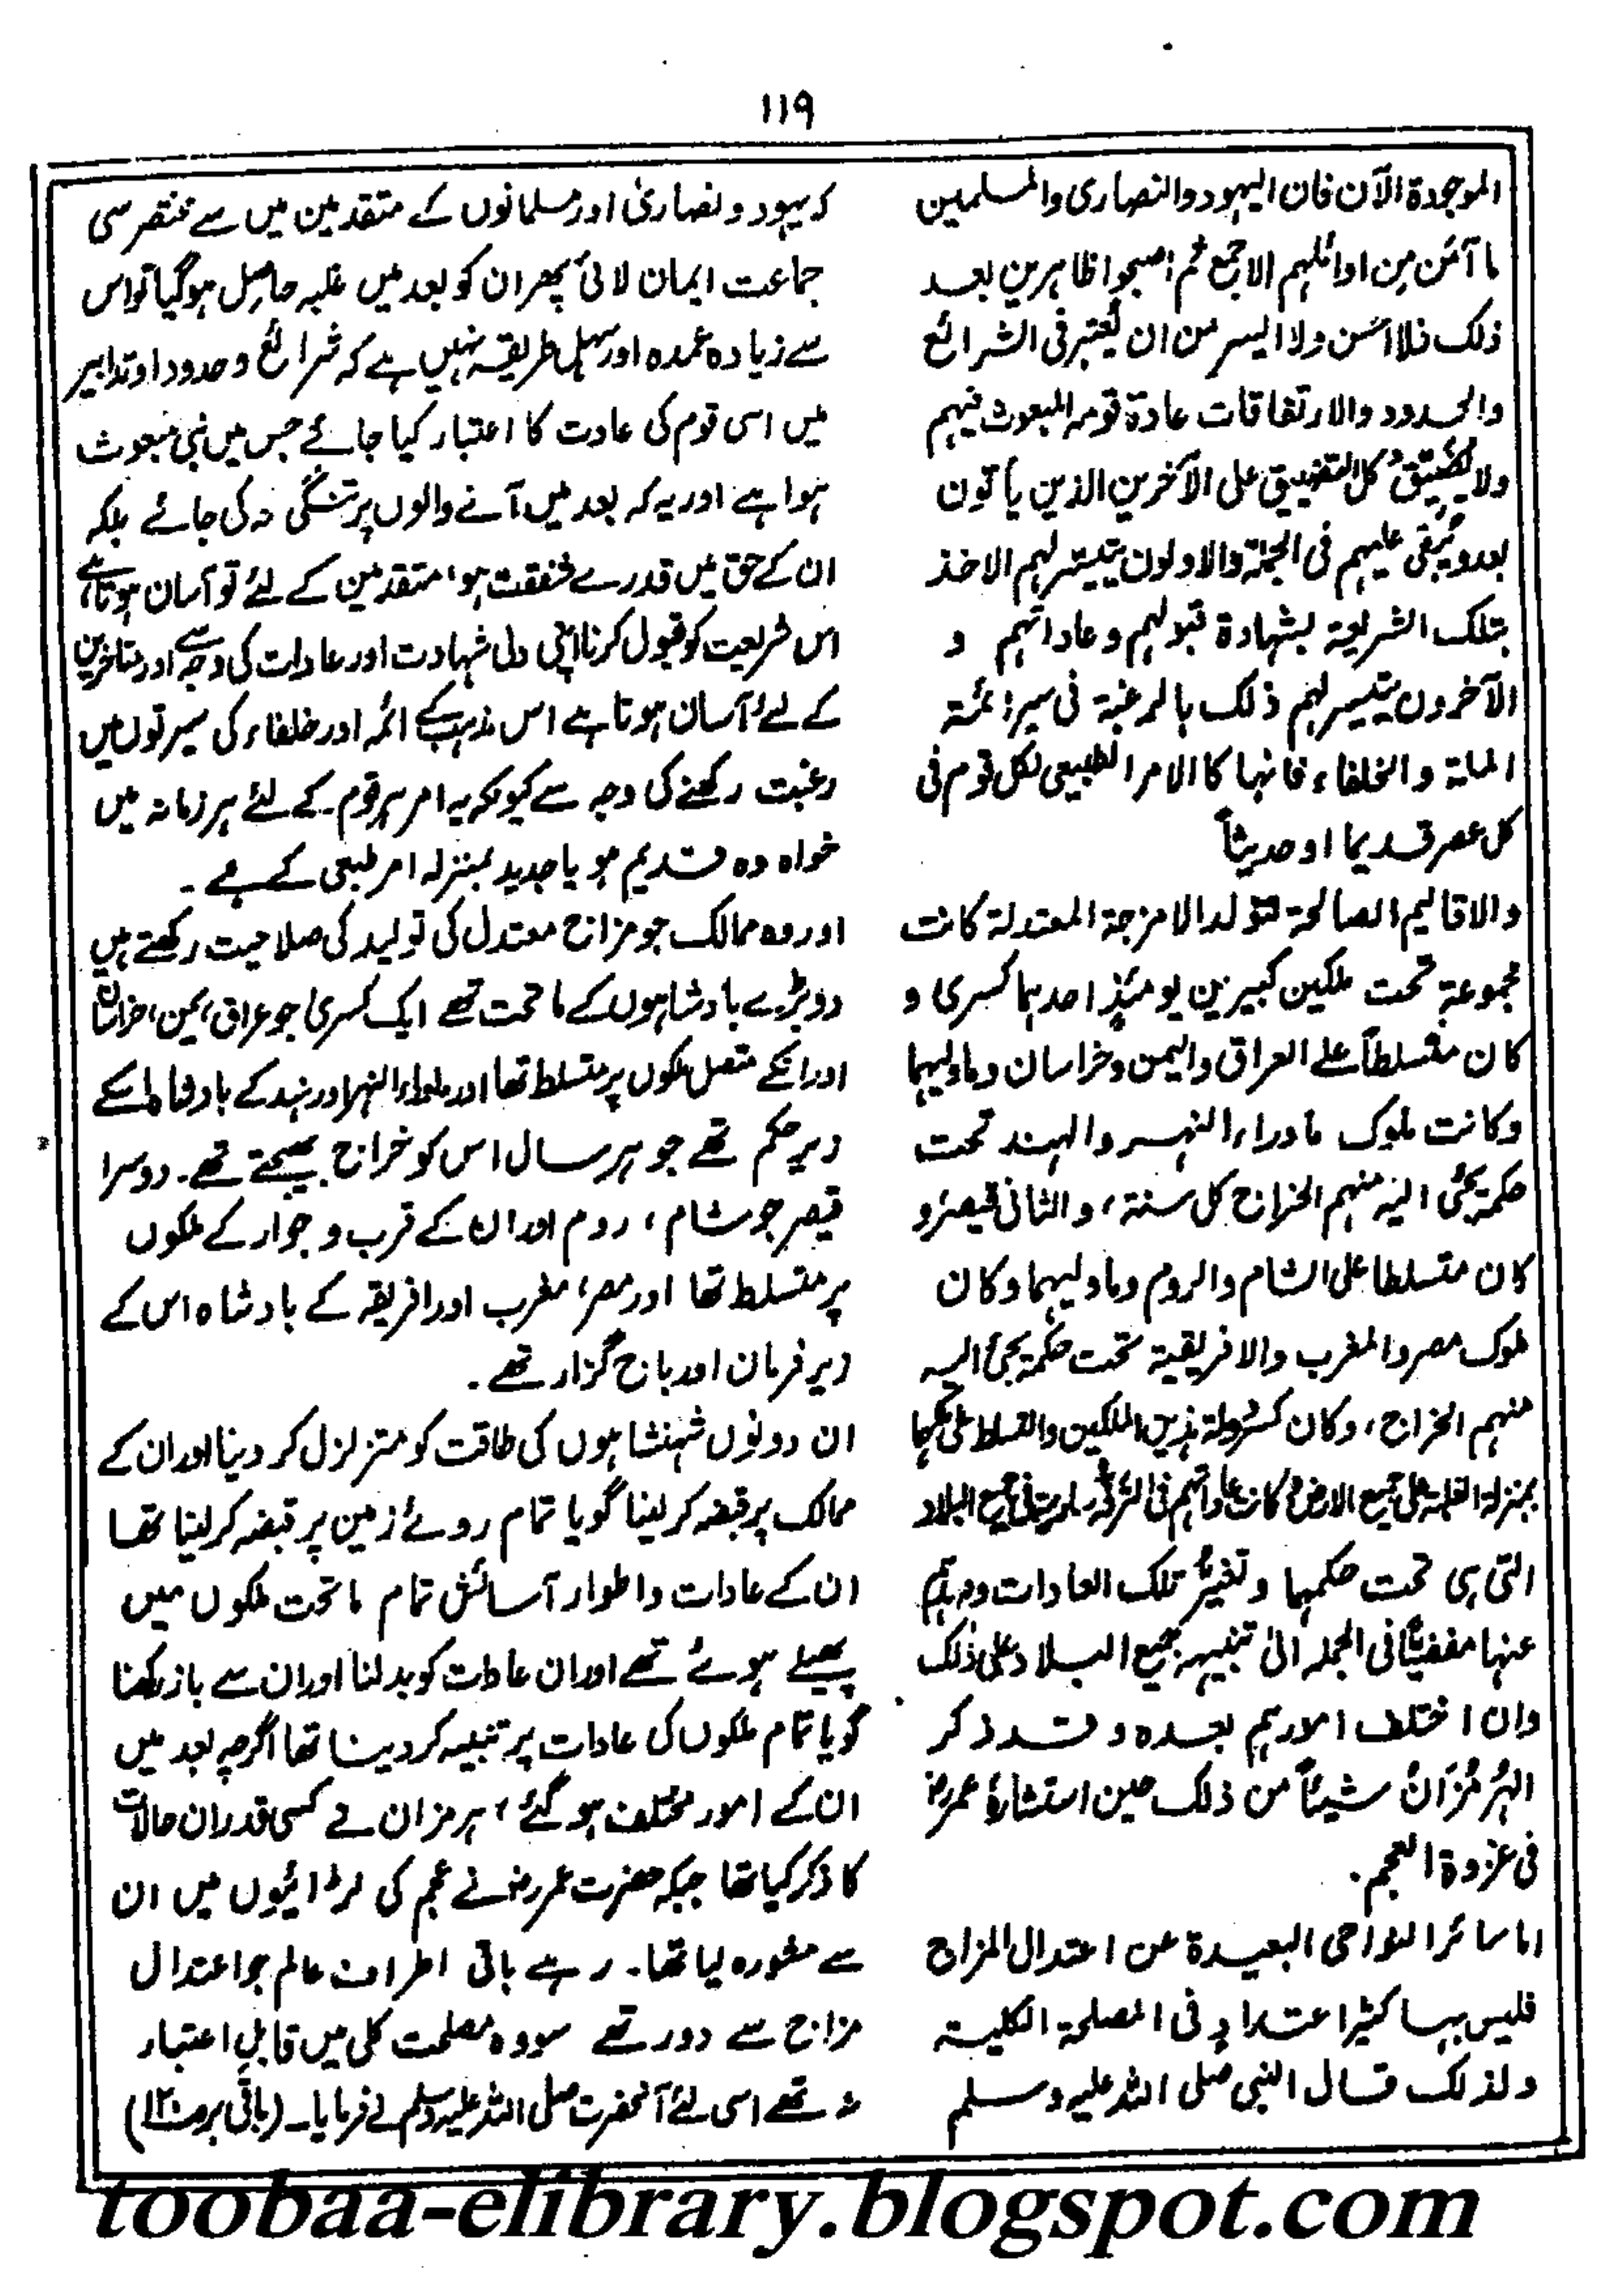 ۱۱۹
الموجودة الآن فان الیہود والنصاری والمسلمین
ما آمن من اوائلہم الا جمع ثم اصبحوا ظاہرین بعد
ذلک فلا احسن ولا ایسر من ان یعتبر فی الشرائع
والحدود والارتفاقات عادة قومہ المبعوث فیہم
ولا یضیّق کل التضییق علی الآخرین الذین یأتون
بعد ویبقی علیہم فی الجملة والاولون یتیسر لہم الاخذ
بتلک الشریعة بشہادة قلوبہم وعاداتہم و
الآخرون یتیسر لہم ذلک بالرغبة فی سیر ائمة
الملة والخلفاء فانہا کالامر الطبیعی لکل قوم فی
کل عصر قدیما او حدیثاً
والاقالیم الصالحة لتولد الامزجة المعتدلة کانت
مجموعة تحت ملکین کبیرین یومئذٍ احدہما کسری و
کان متسلطاً علی العراق والیمن وخراسان وما ولیہما
وکانت ملوک ماوراء النہر والہند تحت
حکمہ یجئی الیہ منہم الخراج کل سنة، والثانی قیصر و
کان متسلطا علی الشام والروم وما ولیہما وکان
ملوک مصر والمغرب والافریقیة تحت حکمہ یجئ الیہ
منہم الخراج، وکان کسر دولة ہذین الملکین والتسلط علی ملکہما
بمنزلة الغلبة علی جمیع الارض وکانت عاداتہم فی الترفہ ساریة فی جمیع البلاد
التی ہی تحت حکمہا وتغییر تلک العادات وصدہم
عنہا مفضیًا فی الجملہ الیٰ تنبیہ جمیع البلاد علی ذلک
وان اختلف امورہم بعدہ وقد ذکر
الہُرمُزَانُ شیئاً من ذلک حین استشارہٗ عمر رض
فی غزوة العجم.
اما سائر النواحی البعیدة عن اعتدال المزاج
فلیس بہا کثیر اعتدادٍ فی المصلحة الکلیة
ولذلک قال النبی صلی اللہ علیہ وسلم
کہ یہود و نصاریٰ اور مسلمانوں کے متقدمین میں سے مختصر سی
جماعت ایمان لائی پھر ان کو بعد میں غلبہ حاصل ہوگیا تو اس
سے زیادہ عمدہ اور سہل طریقہ نہیں ہے کہ شرائع و حدود اور تدابیر
میں اسی قوم کی عادت کا اعتبار کیا جائے جس میں نبی مبعوث
ہوا ہے اور یہ کہ بعد میں آنے والوں پر تنگی نہ کی جائے بلکہ
ان کے حق میں قدرے شفقت ہو، متقدمین کے لئے تو آسان ہوتا ہے
اس شریعت کو قبول کرنا اپنی دلی شہادت اور عادات کی وجہ سے اور متاخرین
کے لئے آسان ہوتا ہے اس مذہب کے ائمہ اور خلفاء کی سیرتوں میں
رغبت رکھنے کی وجہ سے کیونکہ یہ امر ہر قوم کے لئے ہر زمانہ میں
خواہ وہ قدیم ہو یا جدید بمنزلہ امر طبعی کے ہے ۔
اور وہ ممالک جو مزاج معتدل کی تولید کی صلاحیت رکھتے ہیں
دو بڑے بادشاہوں کے ماتحت تھے ایک کسریٰ جو عراق، یمن، خراسان
اور انکے متصل ملکوں پر متسلط تھا اور ماوراء النہر اور ہند کے بادشاہ اسکے
زیر حکم تھے جو ہر سال اس کو خراج بھیجتے تھے۔ دوسرا
قیصر جو شام، روم اور ان کے قرب و جوار کے ملکوں
پر متسلط تھا اور مصر، مغرب اور افریقہ کے بادشاہ اس کے
زیر فرمان اور باج گزار تھے ۔
ان دونوں شہنشاہوں کی طاقت کو متزلزل کر دینا اور ان کے
ممالک پر قبضہ کر لینا گویا تمام روئے زمین پر قبضہ کر لینا تھا
ان کے عادات و اطوار آسائش تمام ماتحت ملکوں میں
پھیلے ہوئے تھے اور ان عادات کو بدلنا اور ان سے باز رکھنا
گویا تمام ملکوں کی عادات پر تنبیہ کر دینا تھا اگرچہ بعد میں
ان کے امور مختلف ہو گئے، ہرمزان نے کسی قدر ان حالات
کا ذکر کیا تھا جبکہ حضرت عمر رض نے عجم کی لڑائیوں میں ان
سے مشورہ لیا تھا۔ رہے باقی اطراف عالم جو اعتدال
مزاج سے دور تھے سو وہ مصلحت کلی میں قابلِ اعتبار
نہ تھے اسی لئے آنحضرت صلی اللہ علیہ وسلم نے فرمایا۔ (باقی بر صـ۱۲۰)
toobaa-elibrary.blogspot.com